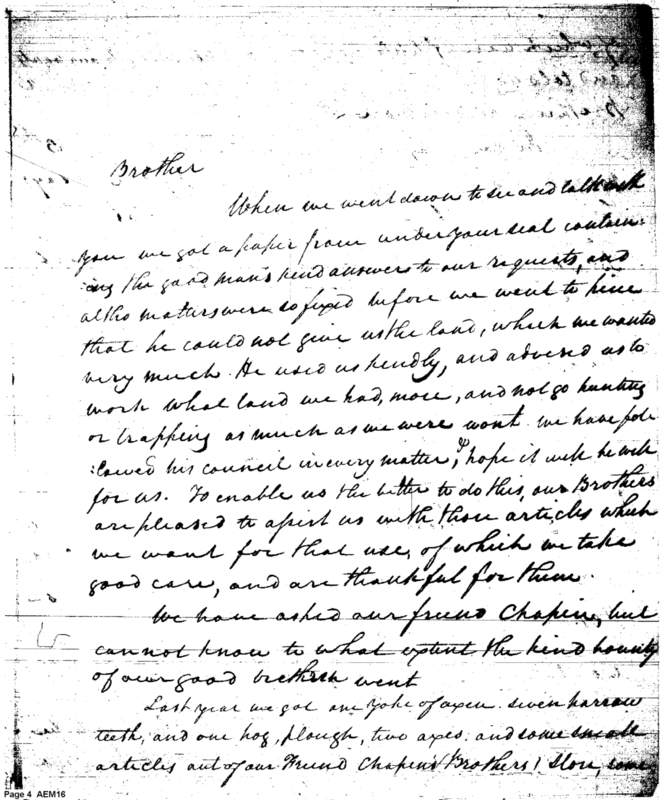 Brother
When we went down to see and talk with
you we got a paper from under your seal contain:
:ing the good man's kind answer to our requests, and
altho matters were so fixed before we went to him
that he could not give us the land, which we wanted
very much. He used us kindly, and advised us to
work what land we had, more, and not go hunting
or trapping as much as we were wont. we have fol:
:lowed his council in every matter, & hope it will be well
for us. To enable us the better to do this, our Brothers
are pleased to assist us with those articles which
we want for that use, of which we take
good care, and are thankful for them.
We have asked our friend Chapin, but
cannot know to what extent the kind bounty
of our good brethren went
Last year we got one yoke of oxen. seven harrow
teeth, and one hog, plough, two axes. and some small
articles out of our Friend Chapin's Brothers' Store, some
Page 4 AEM16